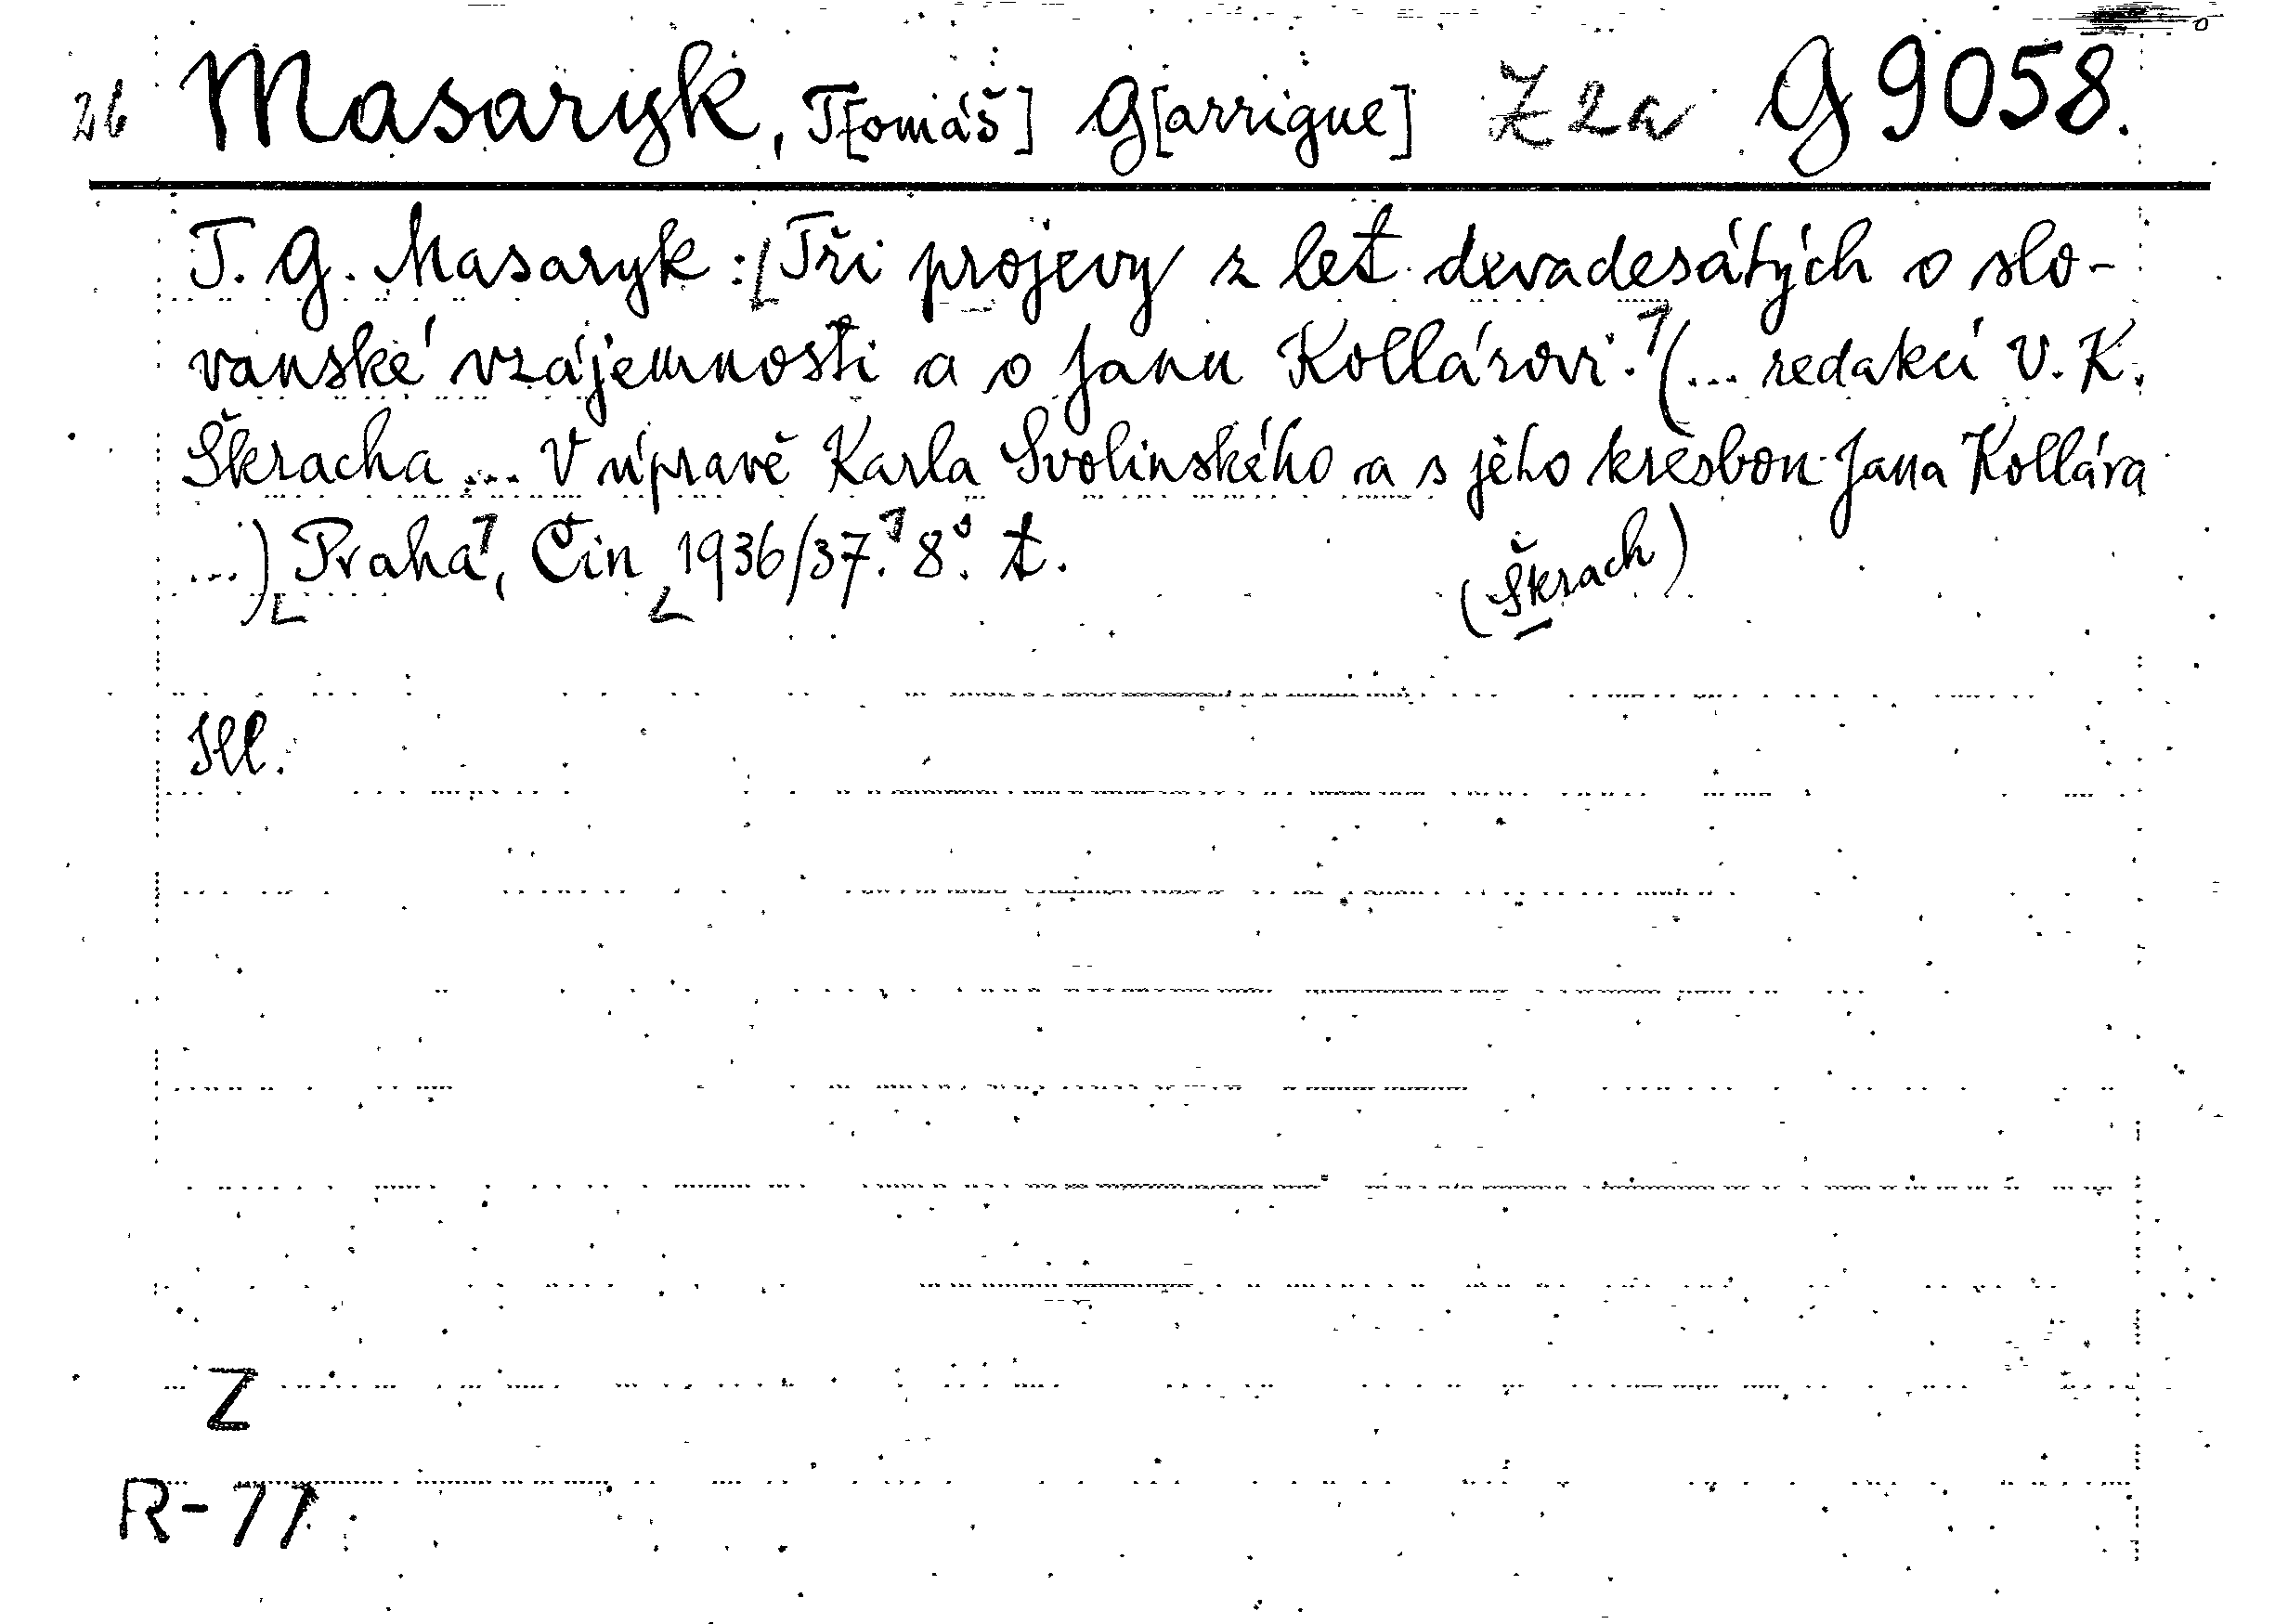 26 Masaryk, T[omáš] G[arrigue] Z 2a G 9058.
T. G. Masaryk: Tři projevy z let devadesátých o slo-
vanské vzájemnosti a o Janu Kollárovi. (... redakcí V. K.
Škracha ... V úpravě Karla Svolinského a s jeho kresbou Jana Kollára
...) Praha, Čin 1936/37. 8°. t.
(Škrach)
Ill.
Z
R-77